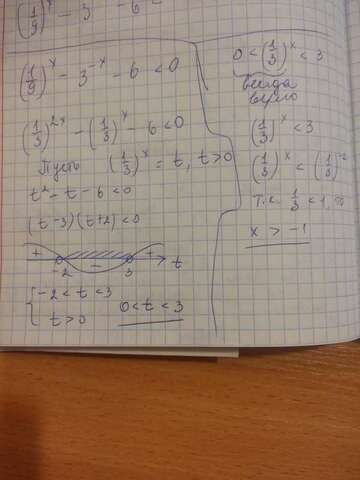 (1/9)^x - 3 - 6
(1/9)^x - 3^-x - 6 < 0
(1/3)^2x - (1/3)^x - 6 < 0
Пусть (1/3)^x = t, t > 0
t² - t - 6 < 0
(t-3)(t+2) < 0
+ -2 - 3 + t
{ -2 < t < 3
t > 0
0 < t < 3
0 < (1/3)^x < 3
всегда
верно
(1/3)^x < 3
(1/3)^x < (1/3)^-1
Т.к. 1/3 < 1, то
x > -1